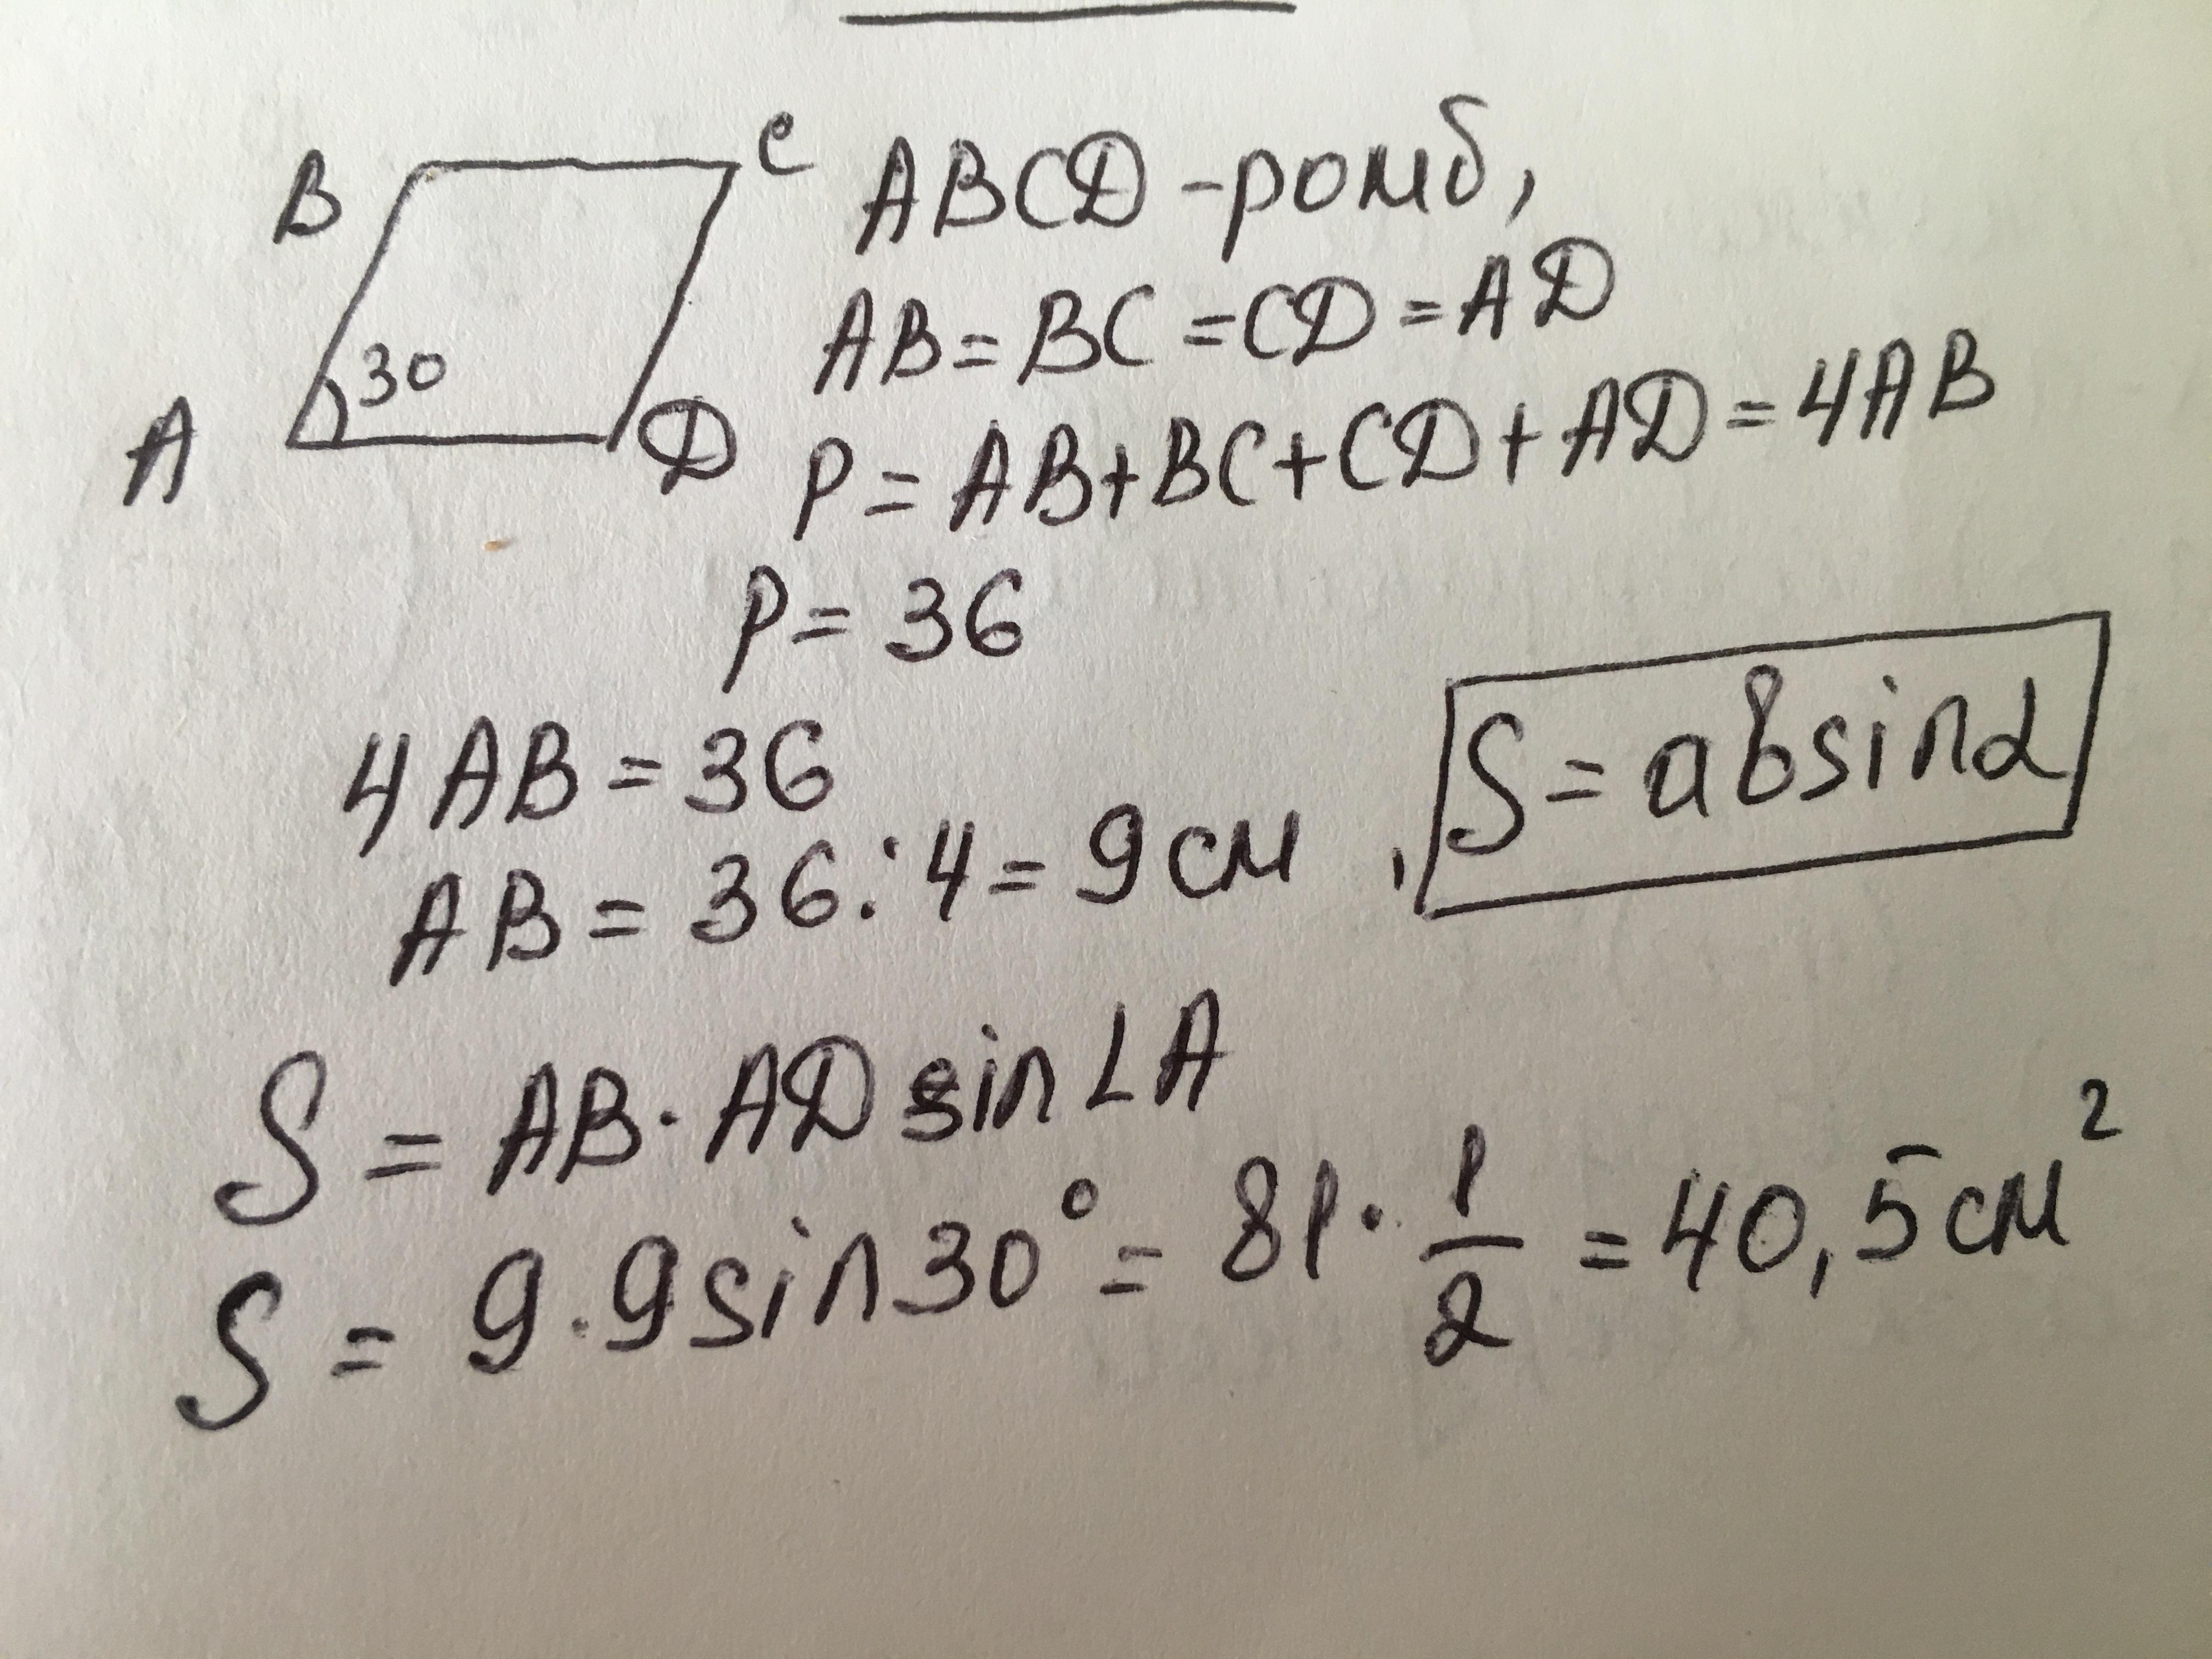 B C
30
A D
ABCD - ромб,
AB = BC = CD = AD
P = AB + BC + CD + AD = 4AB
P = 36
4AB = 36
AB = 36 : 4 = 9 см ,
S = ab sin α
S = AB · AD sin ∠A
S = 9 · 9 sin 30° = 81 · 1/2 = 40,5 см²